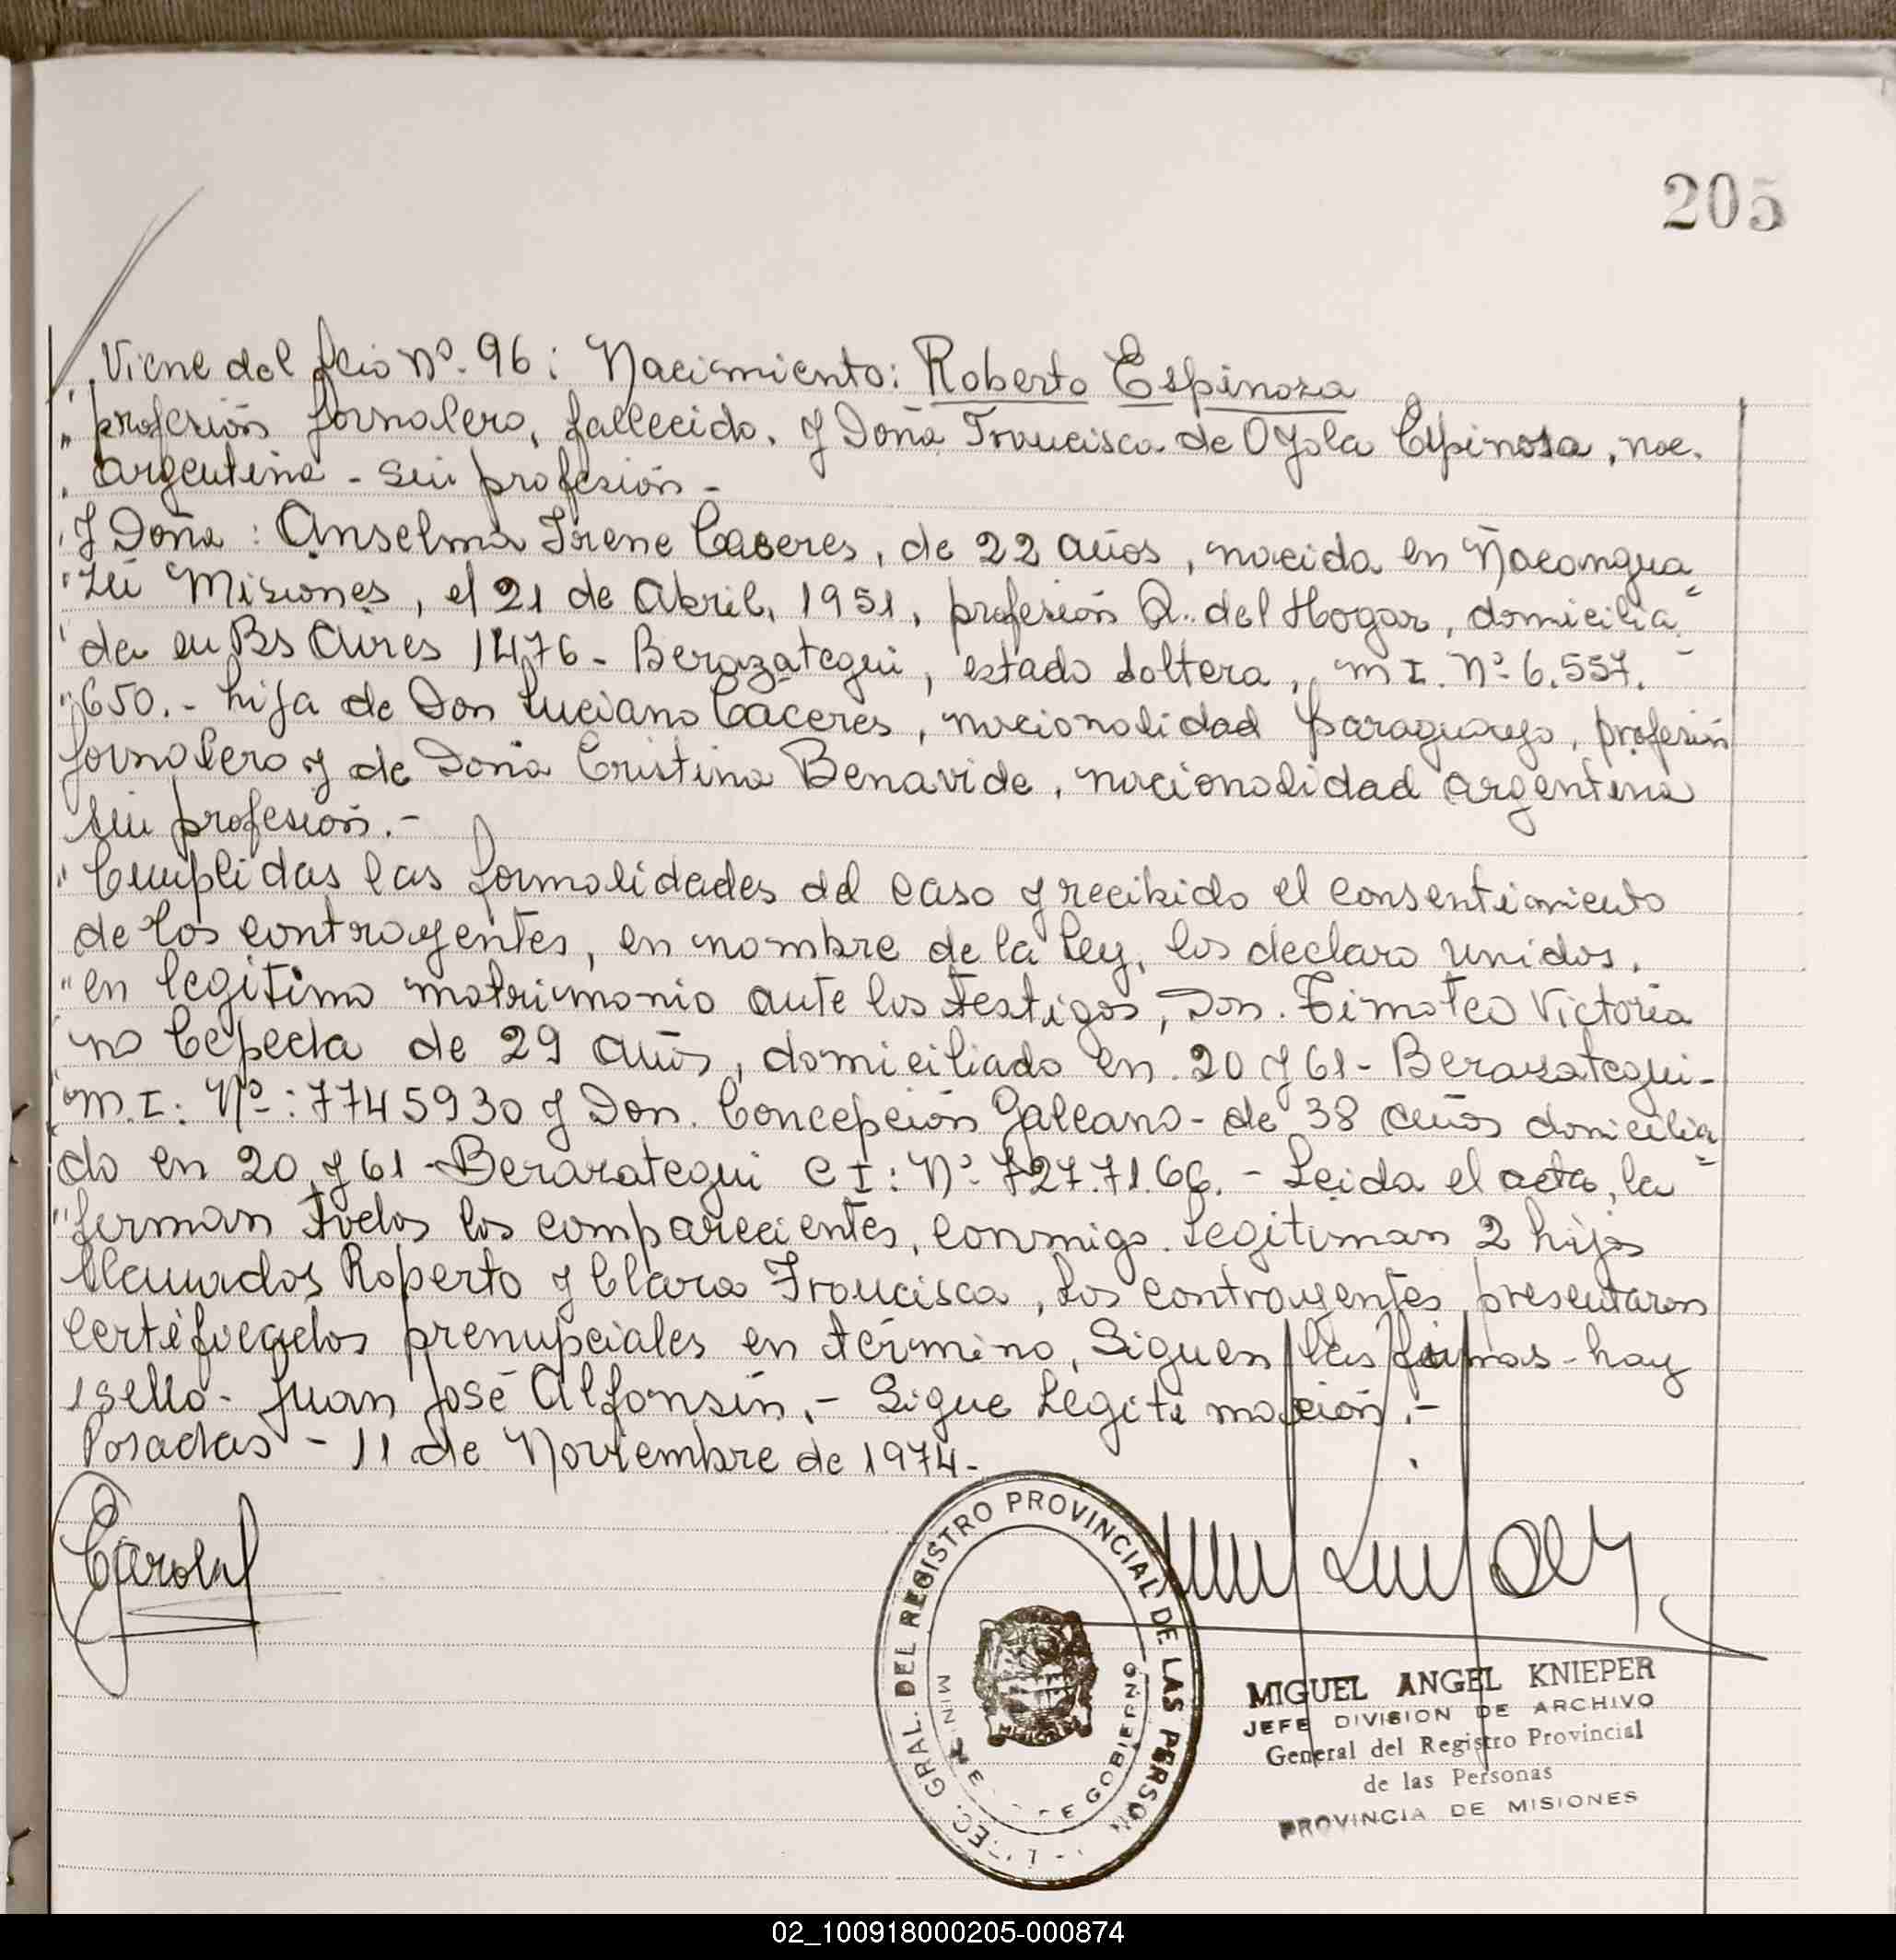 205
Viene del folio Nº. 96: Nacimiento: Roberto Espinoza
profesión jornalero, fallecido. y Doña Francisca de Oyola Espinosa, nac.
argentina - sin profesión -
y Doña: Anselma Irene Caceres, de 22 años, nacida en Ñacangua
zú Misiones, el 21 de Abril, 1951, profesión Q. del Hogar, domicilia=
da en Bs Aires 1476 - Berazategui, estado soltera, m I. Nº 6.557.
650. - hija de Don Luciano Cáceres, nacionalidad paraguayo, profesión
jornalero y de Doña Cristina Benavide, nacionalidad argentina
sin profesión. -
Cumplidas las formalidades del caso y recibido el consentimiento
de los contrayentes, en nombre de la Ley, los declaro unidos.
en legitimo matrimonio ante los testigos, Don. Timoteo Victoria
no Cepeda de 29 años, domiciliado en 20 y 61 - Berazategui -
m. I: Nº: 7745930 y Don. Concepción Galeano - de 38 años domicilia
do en 20 y 61 - Berazategui C I: Nº 727.71.66. - Leida el acta, la=
firman todos los comparecientes, conmigo. Legitiman 2 hijos
llamados Roperto y Clara Francisca, Los contrayentes presentaron
certificados prenupciales en término, Siguen las firmas - hay
1 sello - Juan José Alfonsín. - Sigue Legiti mación. -
Posadas - 11 de Noviembre de 1974 -
GRAL. DEL REGISTRO PROVINCIAL DE LAS PERSON
GOBIERNO
MIGUEL ANGEL KNIEPER
JEFE DIVISION DE ARCHIVO
General del Registro Provincial
de las Personas
PROVINCIA DE MISIONES
02_100918000205-000874